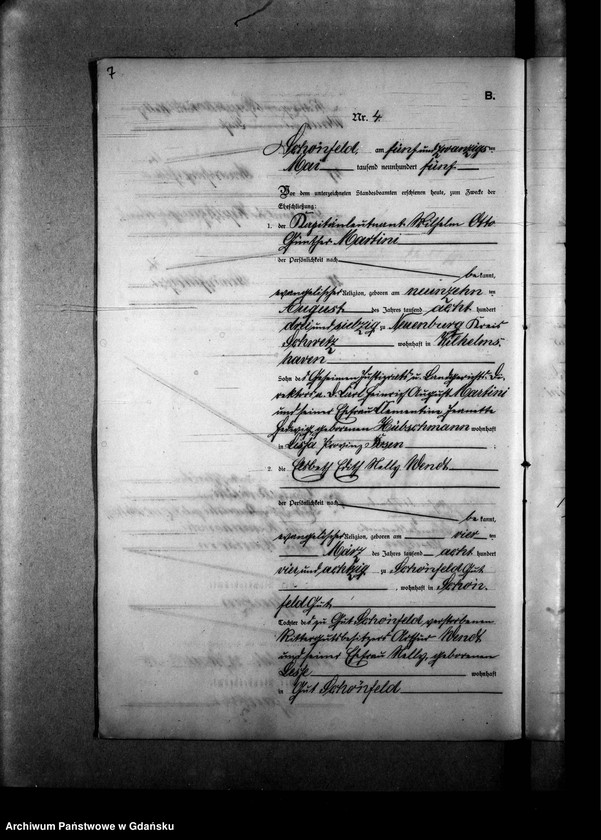 7
B.
Nr. 4.
Schönfeld, am fünfundzwanzigsten
Mai tausend neunhundert fünf
Vor dem unterzeichneten Standesbeamten erschienen heute, zum Zwecke der
Eheschließung:
1. der Kapitänleutnant Wilhelm Otto
Günther Martini
der Persönlichkeit nach
be kannt,
evangelischer Religion, geboren am neunzehn ten
August des Jahres tausend acht hundert
dreiundsiebzig zu Neuenburg Kreis
Schwetz wohnhaft in Wilhelms-
haven
Sohn des Geheimen Justizrats u. Landgerichts-Di-
rektors a. D. Carl Heinrich August Martini
und seiner Ehefrau Clementine Jeanette
Hedwig, geborenen Hübschmann wohnhaft
in Lissa Provinz Posen ;
2. die Elsbeth Edith Nelly Wendt
der Persönlichkeit nach
be kannt,
evangelischer Religion, geboren am vier ten
März des Jahres tausend acht hundert
vierundachtzig zu Schönfeld Gut
, wohnhaft in Schön-
feld Gut
Tochter des zu Gut Schönfeld verstorbenen
Rittergutsbesitzers Arthur Wendt
und seiner Ehefrau Nelly, geborenen
wohnhaft
in Gut Schönfeld
Archiwum Państwowe w Gdańsku